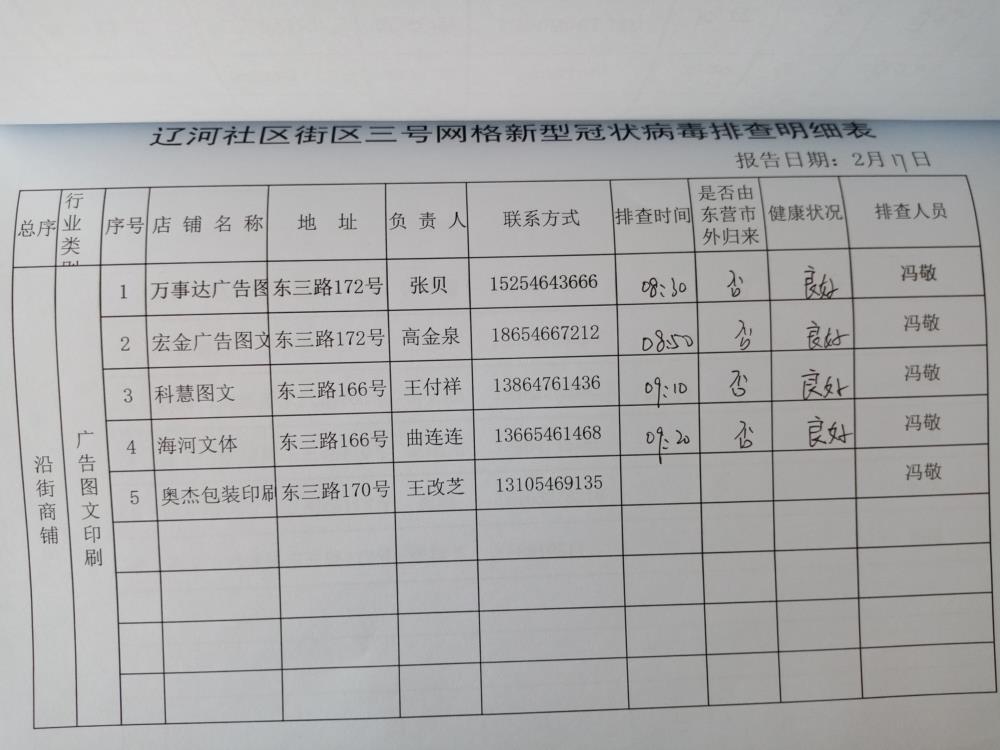 辽河社区街区三号网格新型冠状病毒排查明细表
报告日期：2月17日
总序 行业类别 序号 店铺名称 地址 负责人 联系方式 排查时间 是否由东营市外归来 健康状况 排查人员
沿街商铺 广告图文印刷
1 万事达广告图 东三路172号 张贝 15254643666 08:30 否 良好 冯敬
2 宏金广告图文 东三路172号 高金泉 18654667212 08:50 否 良好 冯敬
3 科慧图文 东三路166号 王付祥 13864761436 09:10 否 良好 冯敬
4 海河文体 东三路166号 曲连连 13665461468 09:20 否 良好 冯敬
5 奥杰包装印刷 东三路170号 王改芝 13105469135 冯敬